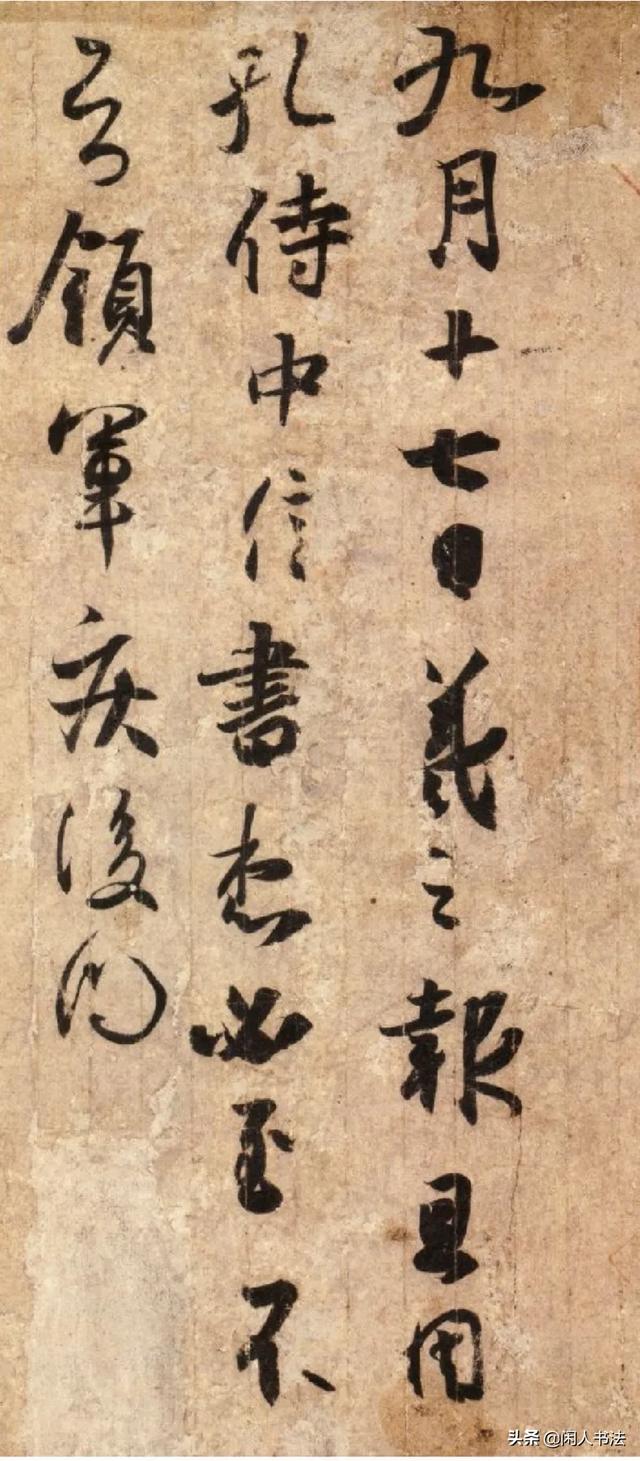 九月十七日羲之報且因
孔侍中信書想必至不
知領軍疾後問
头条 @闲人书法